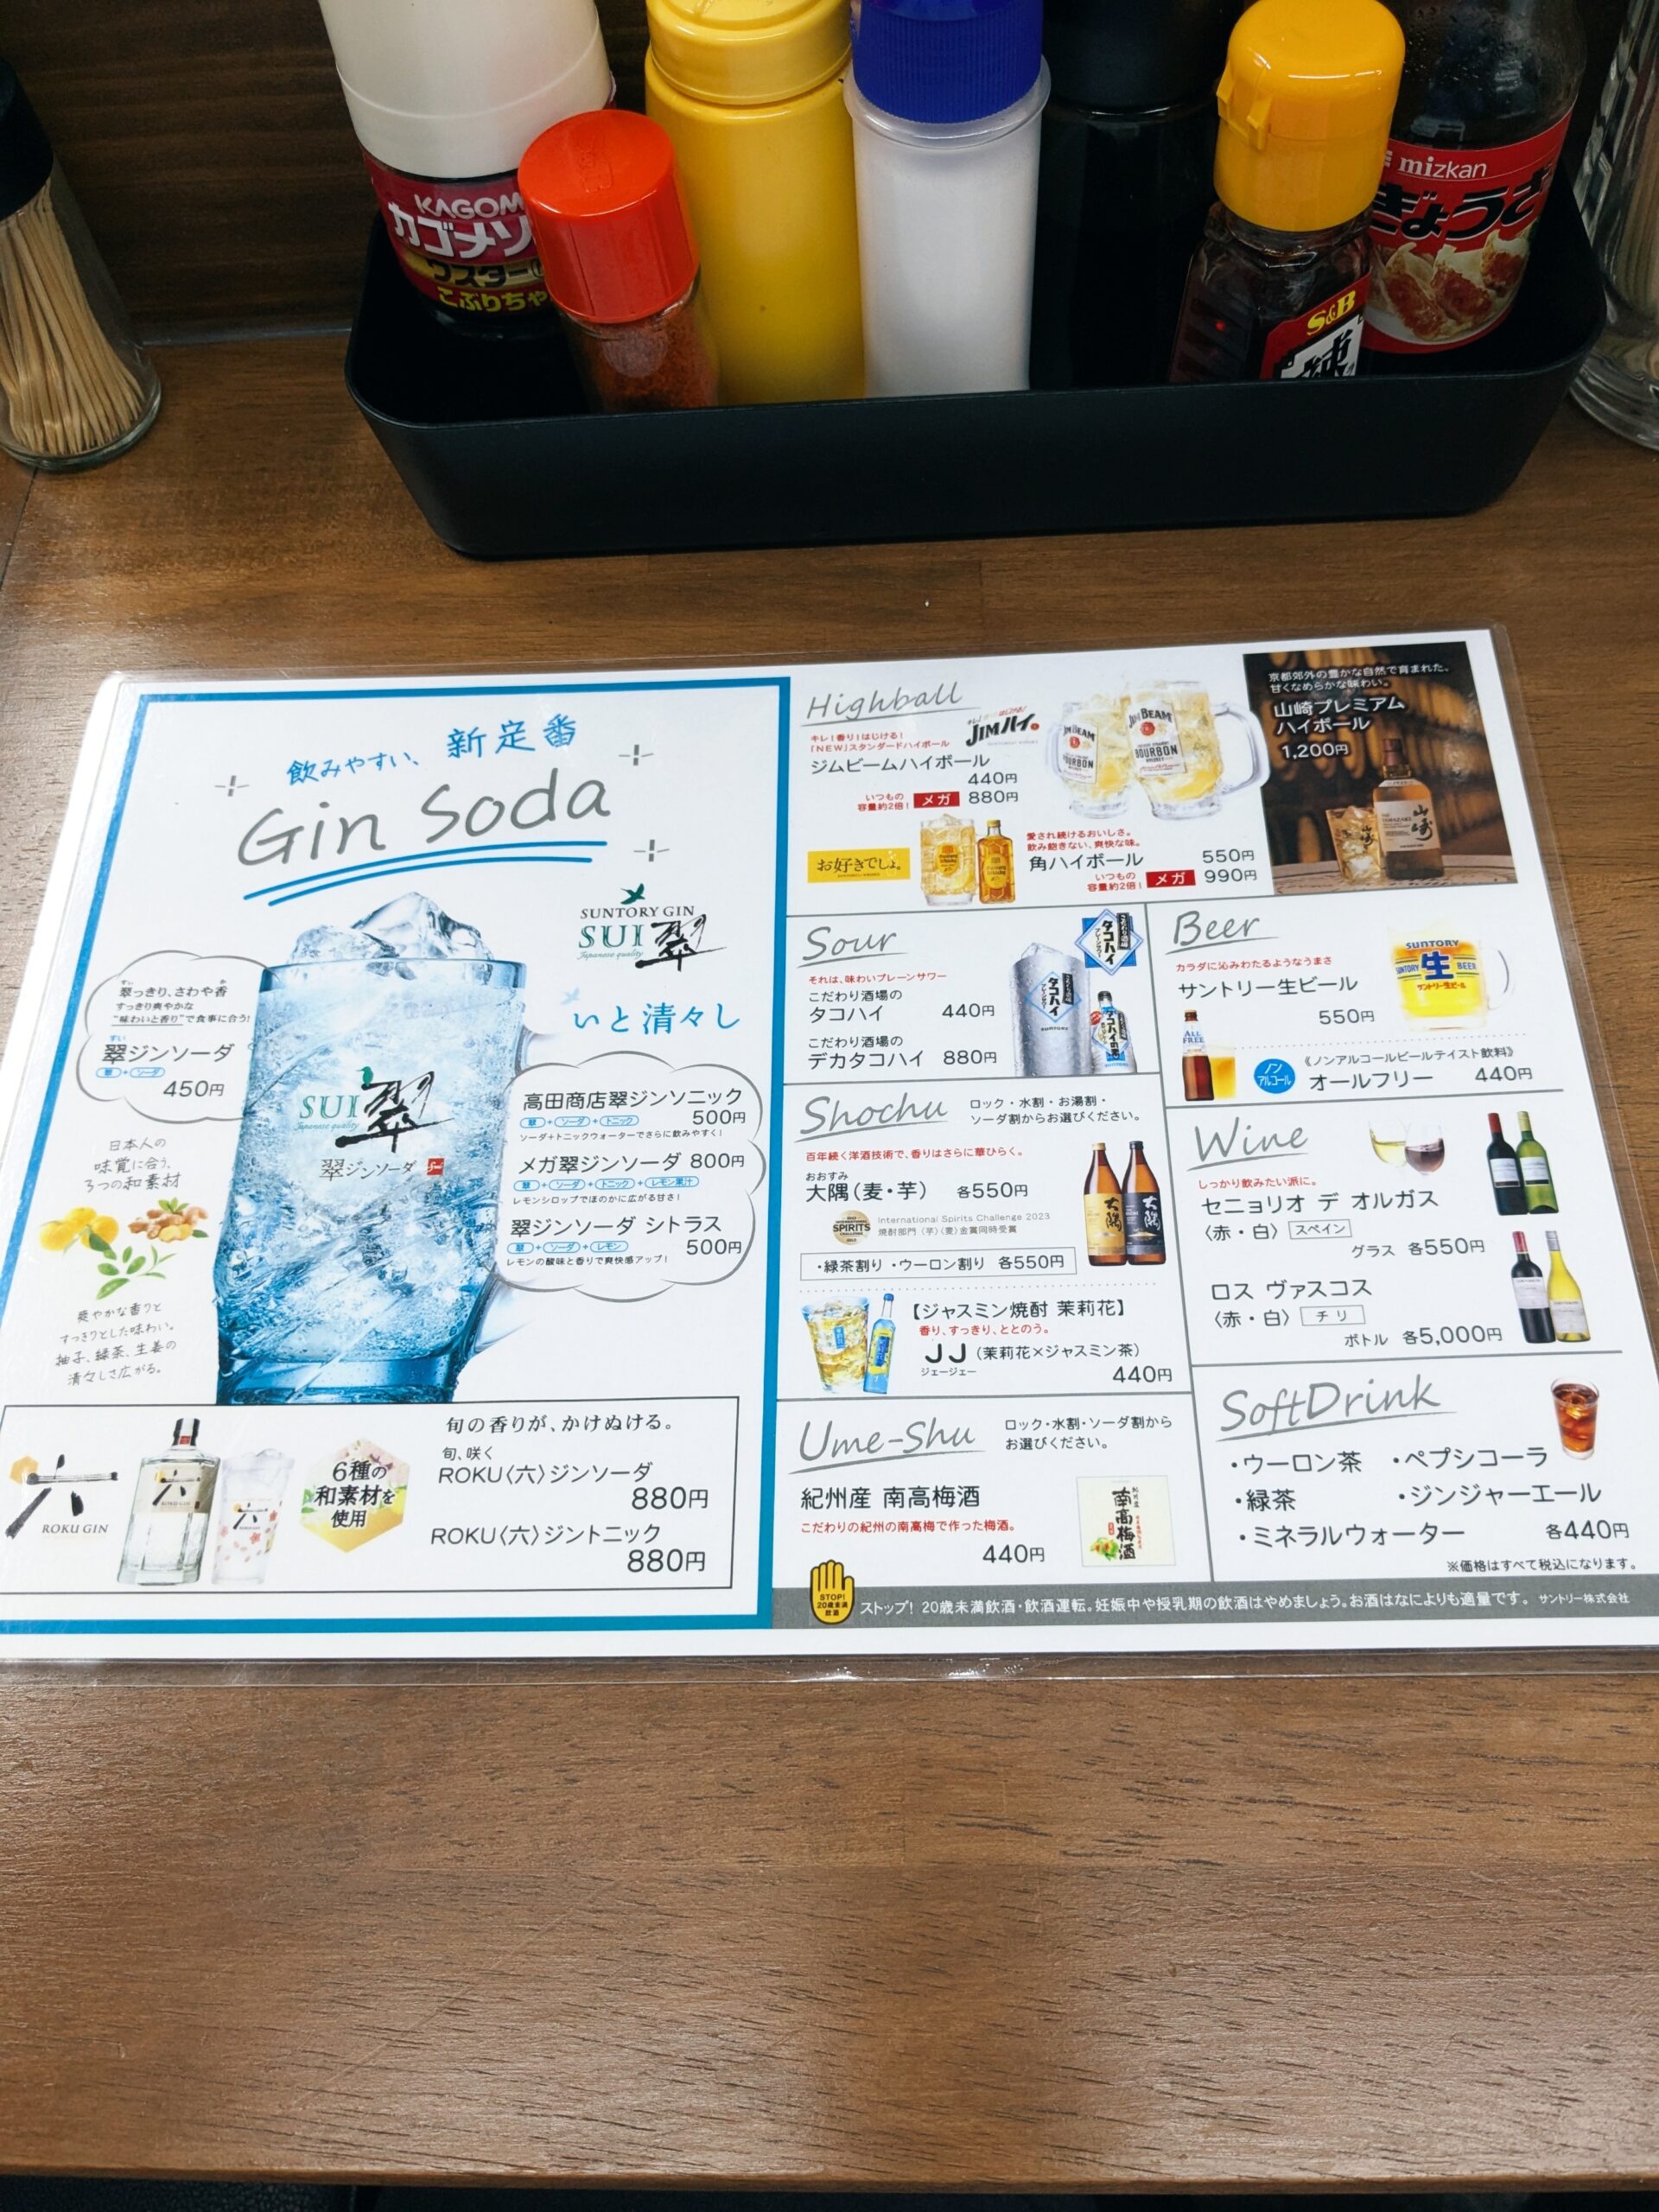 KAGOM
カゴメソ
ウスター
こぶりちゃ
S&B
mizkan
ぎょうざ
飲みやすい、新定番
Gin Soda
SUNTORY GIN
SUI 翠
Japanese quality
いと清々し
翠っきり、さわや香
すっきり爽やかな
"味わいと香り"で食事に合う!
すい
翠ジンソーダ
翠+ソーダ
450円
SUI 翠
Japanese quality
翠ジンソーダ
日本人の
味覚に合う、
3つの和素材
爽やかな香りと
すっきりとした味わい。
柚子、緑茶、生姜の
清々しさ広がる。
高田商店翠ジンソニック
翠+ソーダ+トニック 500円
ソーダ+トニックウォーターでさらに飲みやすく!
メガ翠ジンソーダ 800円
翠+ソーダ+トニック+レモン果汁
レモンシロップでほのかに広がる甘さ!
翠ジンソーダ シトラス
翠+ソーダ+レモン 500円
レモンの酸味と香りで爽快感アップ!
六
ROKU GIN
六
六
6種の
和素材を
使用
旬の香りが、かけぬける。
旬、咲く
ROKU〈六〉ジンソーダ
880円
ROKU〈六〉ジントニック
880円
Highball
キレ!香り!はじける!
「NEW」スタンダードハイボール
ジムビームハイボール
440円
いつもの
容量約2倍! メガ 880円
JIMハイ。
JIM BEAM
BOURBON
JIM BEAM
BOURBON
お好きでしょ。
愛され続けるおいしさ。
飲み飽きない、爽快な味。
角ハイボール 550円
いつもの
容量約2倍! メガ 990円
京都郊外の豊かな自然で育まれた、
甘くなめらかな味わい。
山崎プレミアム
ハイボール
1,200円
山崎
Sour
それは、味わいプレーンサワー
こだわり酒場の
タコハイ 440円
こだわり酒場の
デカタコハイ 880円
タコハイ
タコハイ
SUNTORY
Beer
カラダに沁みわたるようなうまさ
サントリー生ビール
550円
SUNTORY
生
BEER
サントリー生ビール
ALL
FREE
ノン
アルコール
《ノンアルコールビールテイスト飲料》
オールフリー 440円
Shochu
ロック・水割・お湯割・
ソーダ割からお選びください。
百年続く洋酒技術で、香りはさらに華ひらく。
おおすみ
大隅(麦・芋) 各550円
SPIRITS
International Spirits Challenge 2023
焼酎部門〈芋〉〈麦〉金賞同時受賞
・緑茶割り ・ウーロン割り 各550円
大隅
大隅
【ジャスミン焼酎 茉莉花】
香り、すっきり、ととのう。
JJ(茉莉花×ジャスミン茶)
ジェージェー
440円
Wine
しっかり飲みたい派に。
セニョリオ デ オルガス
〈赤・白〉 スペイン
グラス 各550円
ロス ヴァスコス
〈赤・白〉 チリ
ボトル 各5,000円
Ume-Shu
ロック・水割・ソーダ割から
お選びください。
紀州産 南高梅酒
こだわりの紀州の南高梅で作った梅酒。
440円
南高梅酒
SoftDrink
・ウーロン茶 ・ペプシコーラ
・緑茶 ・ジンジャーエール
・ミネラルウォーター 各440円
※価格はすべて税込になります。
STOP!
20歳未満
飲酒
ストップ! 20歳未満飲酒・飲酒運転。妊娠中や授乳期の飲酒はやめましょう。お酒はなによりも適量です。 サントリー株式会社